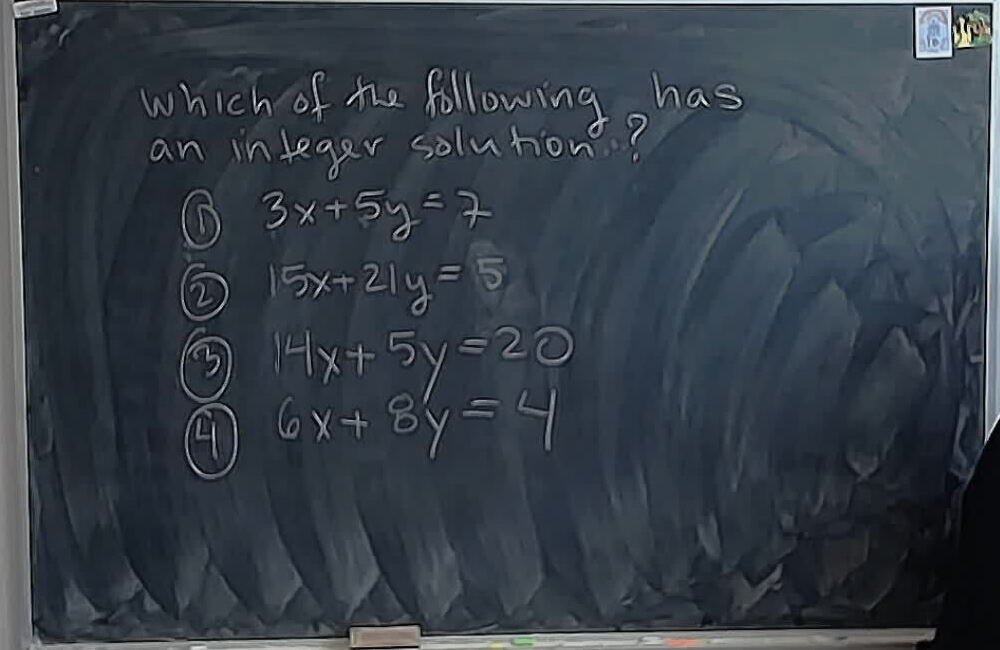 Which of the following has
an integer solution?
① 3x+5y=7
② 15x+21y=5
③ 14x+5y=20
④ 6x+8y=4